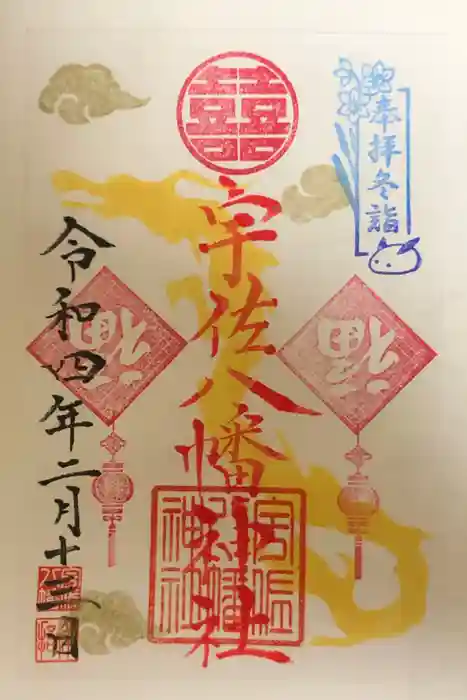 奉拝冬詣
囍
宇佐八幡神社
福
福
宇佐八幡神社
令和四年二月十二日